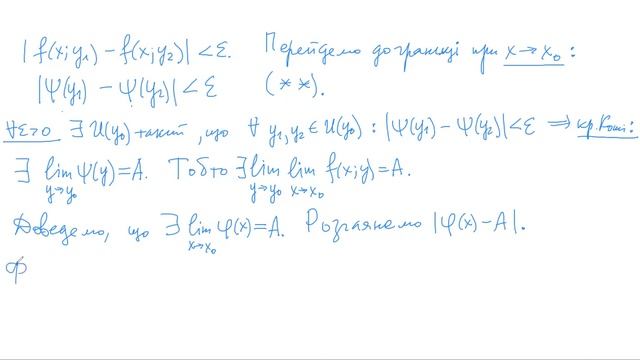 |f(x;y₁) − f(x;y₂)| < ε. Перейдемо до границі при x→x₀:
|Ψ(y₁) − Ψ(y₂)| < ε (**).
∀ε>0 ∃ U(y₀) такий, що ∀ y₁,y₂ ∈ U(y₀): |Ψ(y₁) − Ψ(y₂)| < ε ⟹ кр. Коші:
∃ lim Ψ(y) = A. Тобто ∃ lim lim f(x;y) = A.
y→y₀ y→y₀ x→x₀
Доведемо, що ∃ lim φ(x) = A. Розглянемо |φ(x) − A|.
x→x₀
Ф